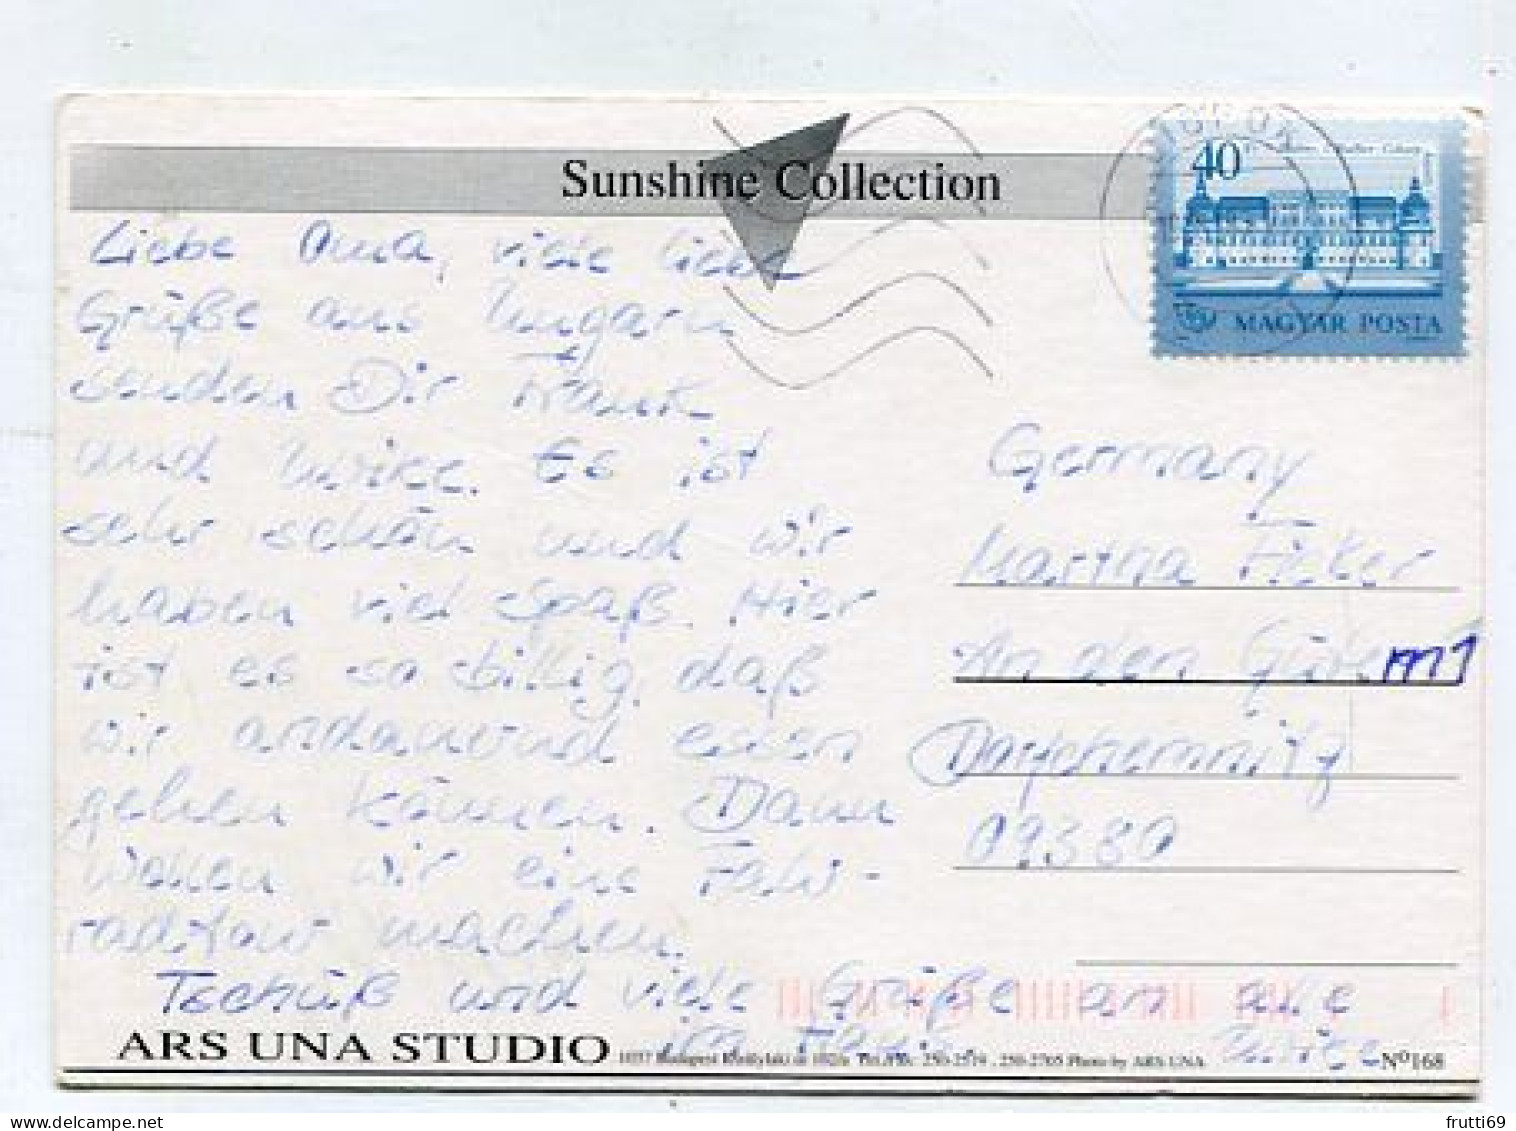 Sunshine Collection
40
MAGYAR POSTA
Liebe Oma, viele liebe
Grüße aus Ungarn
senden Dir Frank
und Ulrike. Es ist
sehr schön und wir
haben viel Spaß. Hier
ist es so billig, daß
wir andauernd essen
gehen können. Dann
wollen wir eine Fahr-
radtour machen.
Tschüß und viele Grüße an alle
Ulrike
Germany
Martha Ficker
An den Gütern 1
Dorfchemnitz
09380
ARS UNA STUDIO
1037 Budapest 250-2519, 250-2705 Photo by ARS UNA
Nº168
frutti69